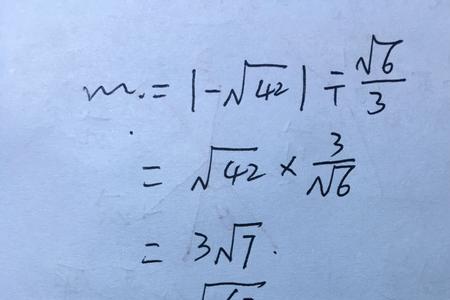 m. = |-√42| ÷ √6/3
= √42 × 3/√6
= 3√7.